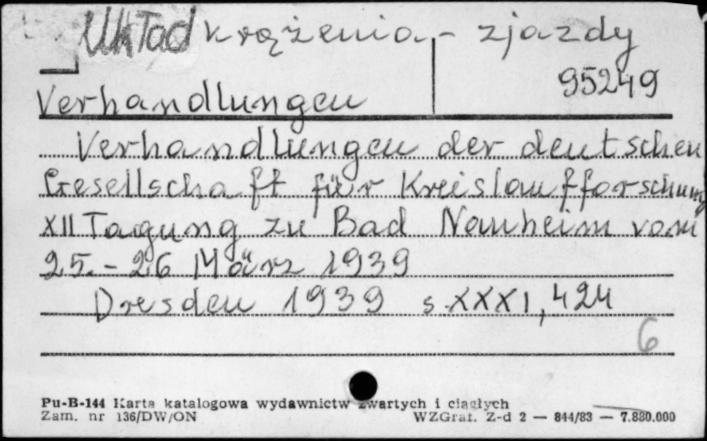 Układ krążenia - zjazdy
95249
Verhandlungen
Verhandlungen der deutschen
Gesellschaft für Kreislaufforschung
XII Tagung zu Bad Nauheim vom
25.-26 März 1939
Dresden 1939 s. XXXI, 424
6
Pu-B-144 Karta katalogowa wydawnictw zwartych i ciągłych
Zam. nr 136/DW/ON WZGraf. Z-d 2 — 844/83 — 7.880.000